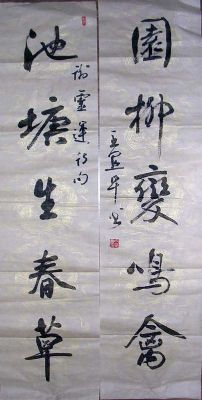 池塘生春草
謝靈運詩句
園柳變鳴禽